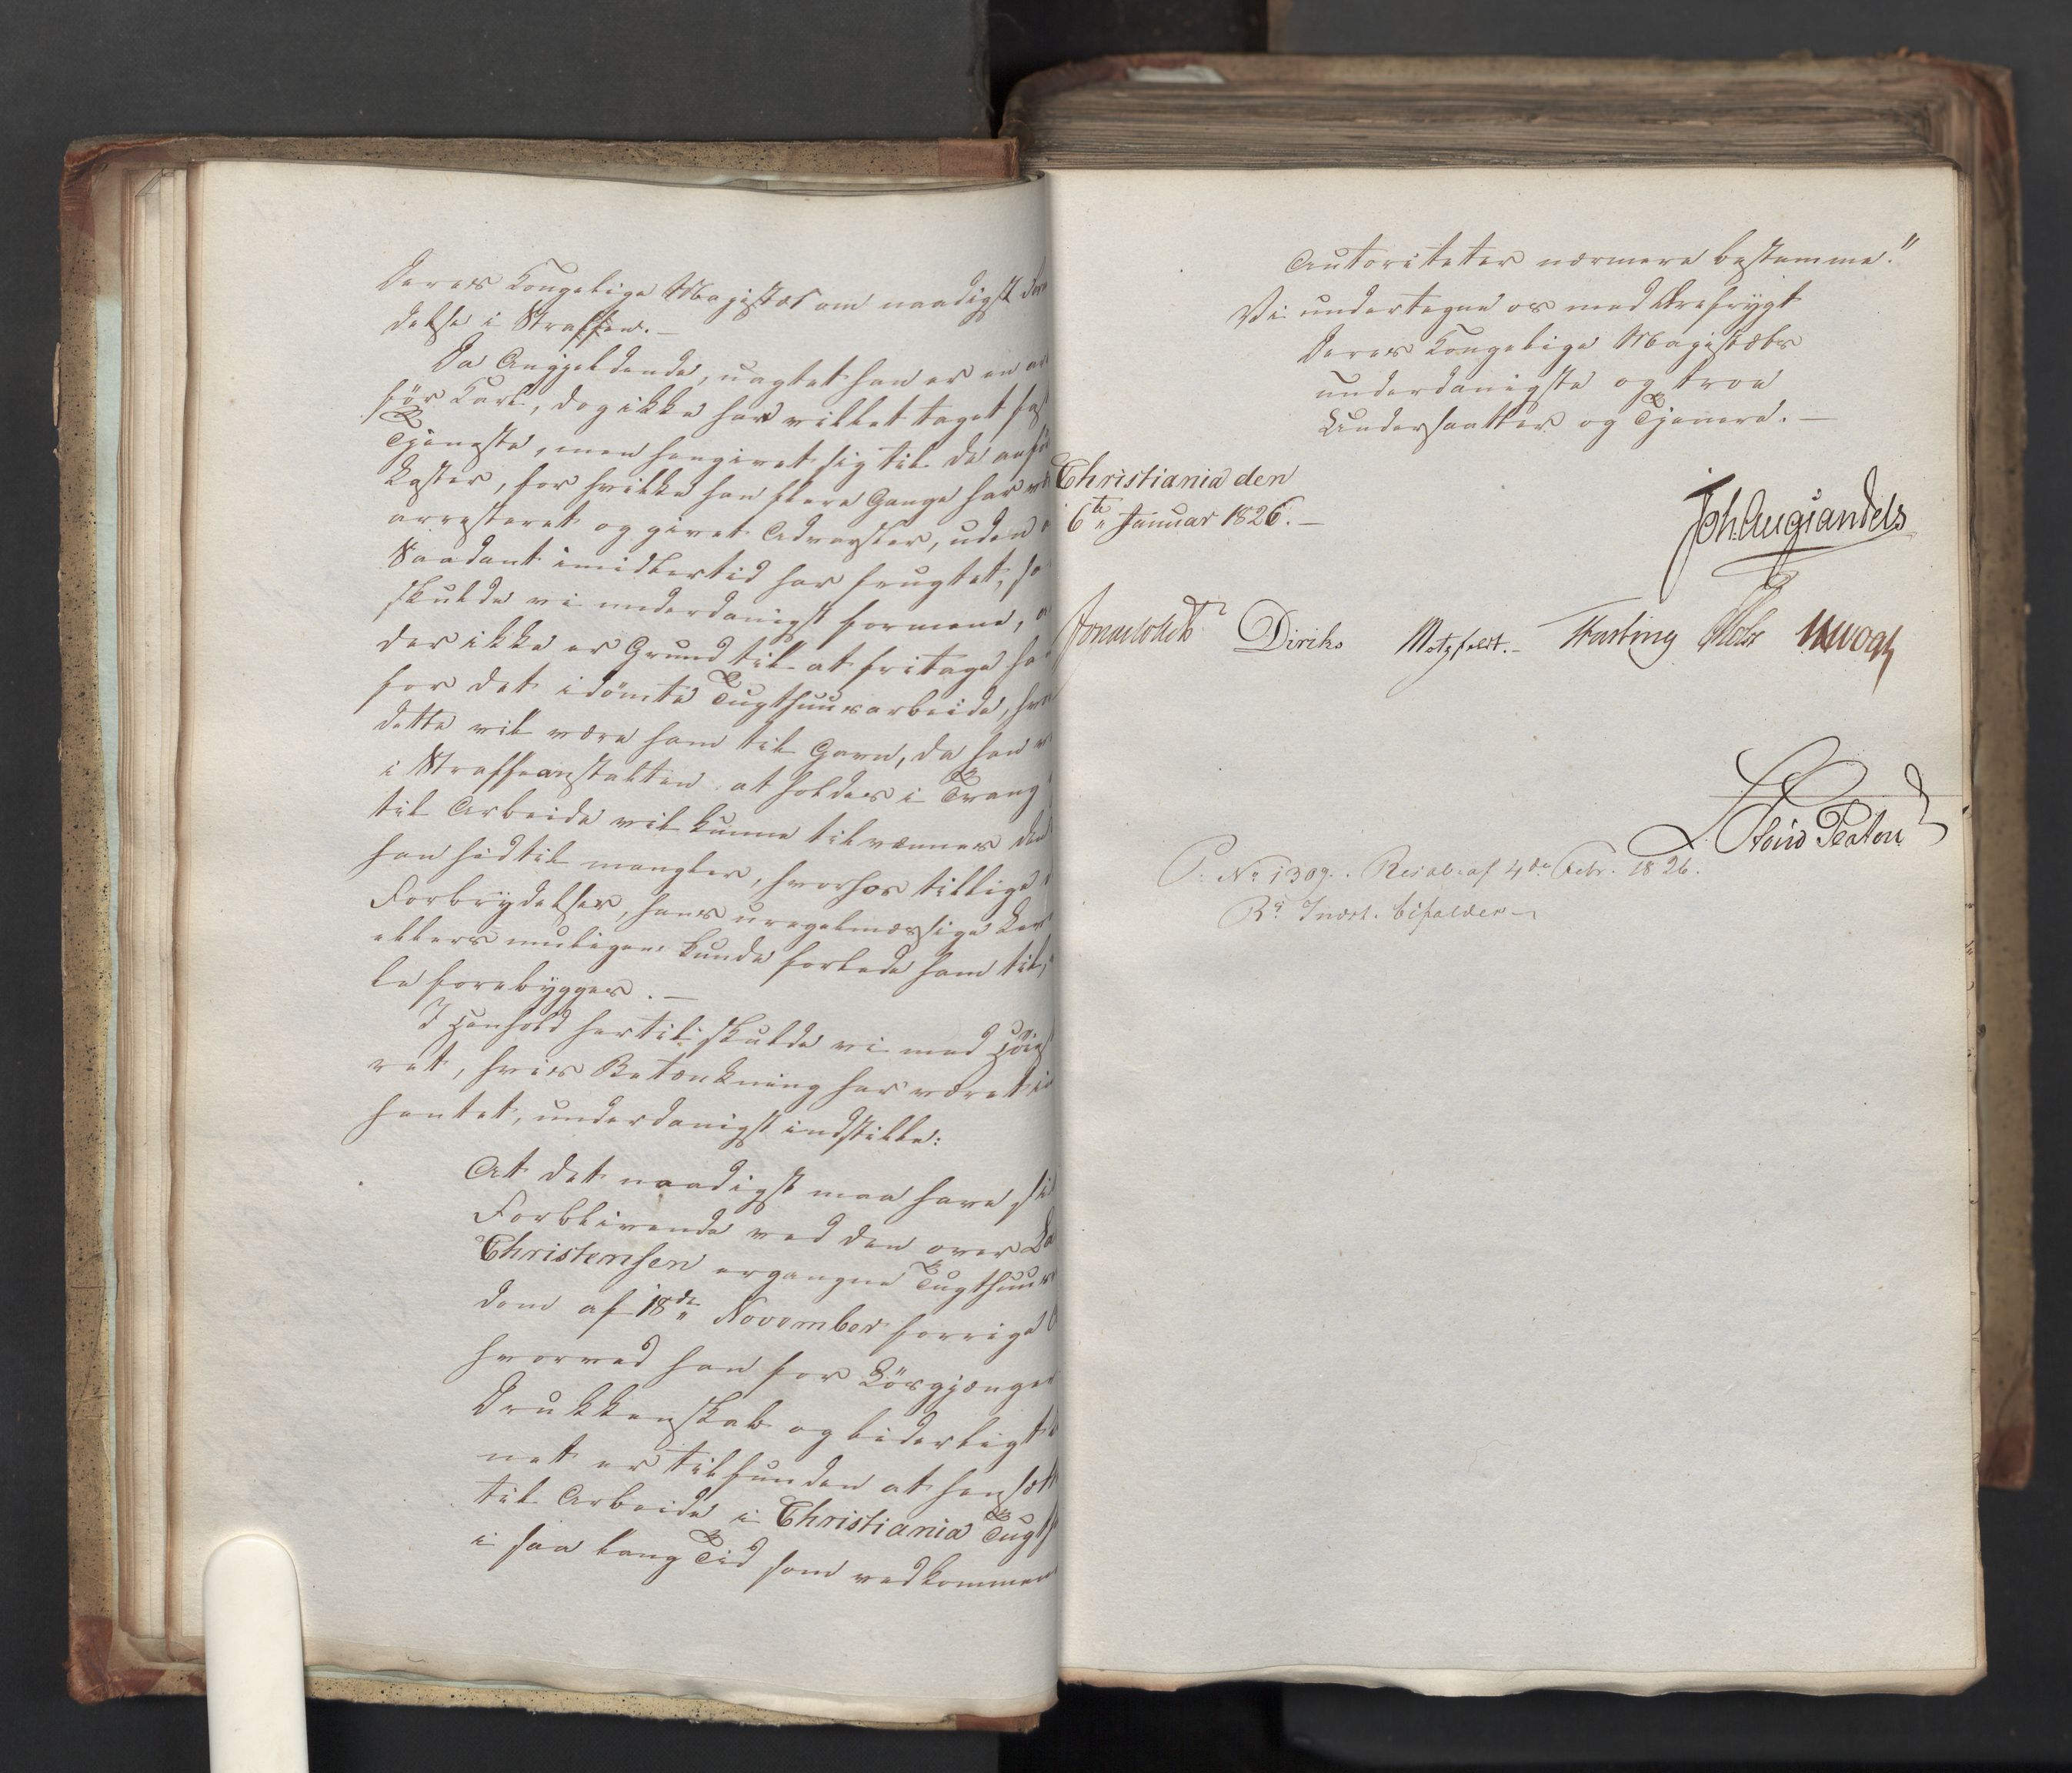 Deres Kongelige Majestæt om naadigst For
delse i Straffen. —
Da Angjeldende, uagtet han er en ar
før Karl, dog ikke har villet taget fast
Tjeneste, men hengivet sig til de anfø
Laster, for hvilke han flere Gange har væ
arresteret og givet Advarsler, uden a
Saadant imidlertid har frugtet, sa
skulde vi underdanigst formene, a
der ikke er Grund til at fritage ha
for det idømte Tugthuusarbeide, hvo
dette vil være ham til Gavn, da han v
i Straffeanstalten at holdes i Trang
til Arbeide vil kunne tilvænnes den
han hidtil mangler, hvorhos tillige
Forbrydelser, hans uregelmæssige Lev
ellers muligen kunde forlede ham til,
le forebygges. —
I Henhold hertil skulde vi med Høies
ret, hvis Betænkning har været in
hentet, underdanigst indstille:
At det naadigst maa have sit
Forblivende ved den over La
Christensen ergangne Tugthuus
dom af 18de November forrige A
hvorved han for Løsgjænger
Drukkenskab og liderligt L
net er tilfunden at hensætt
til Arbeide i Christiania Tugth
i saa lang Tid som vedkommen
Autoriteter nærmere bestemme."
Vi undertegne os med Ærefrygt
Deres Kongelige Majestæts
underdanigste og troe
Undersaatter og Tjenere. —
Christiania den
6te Januar 1826. —
Joh. Aug. Sandels
Jonas Collett Diriks Motzfeldt. Fasting Holst
P. No 1309. Resol. af 4de Febr. 1826.
Rs Indst. bifaldes